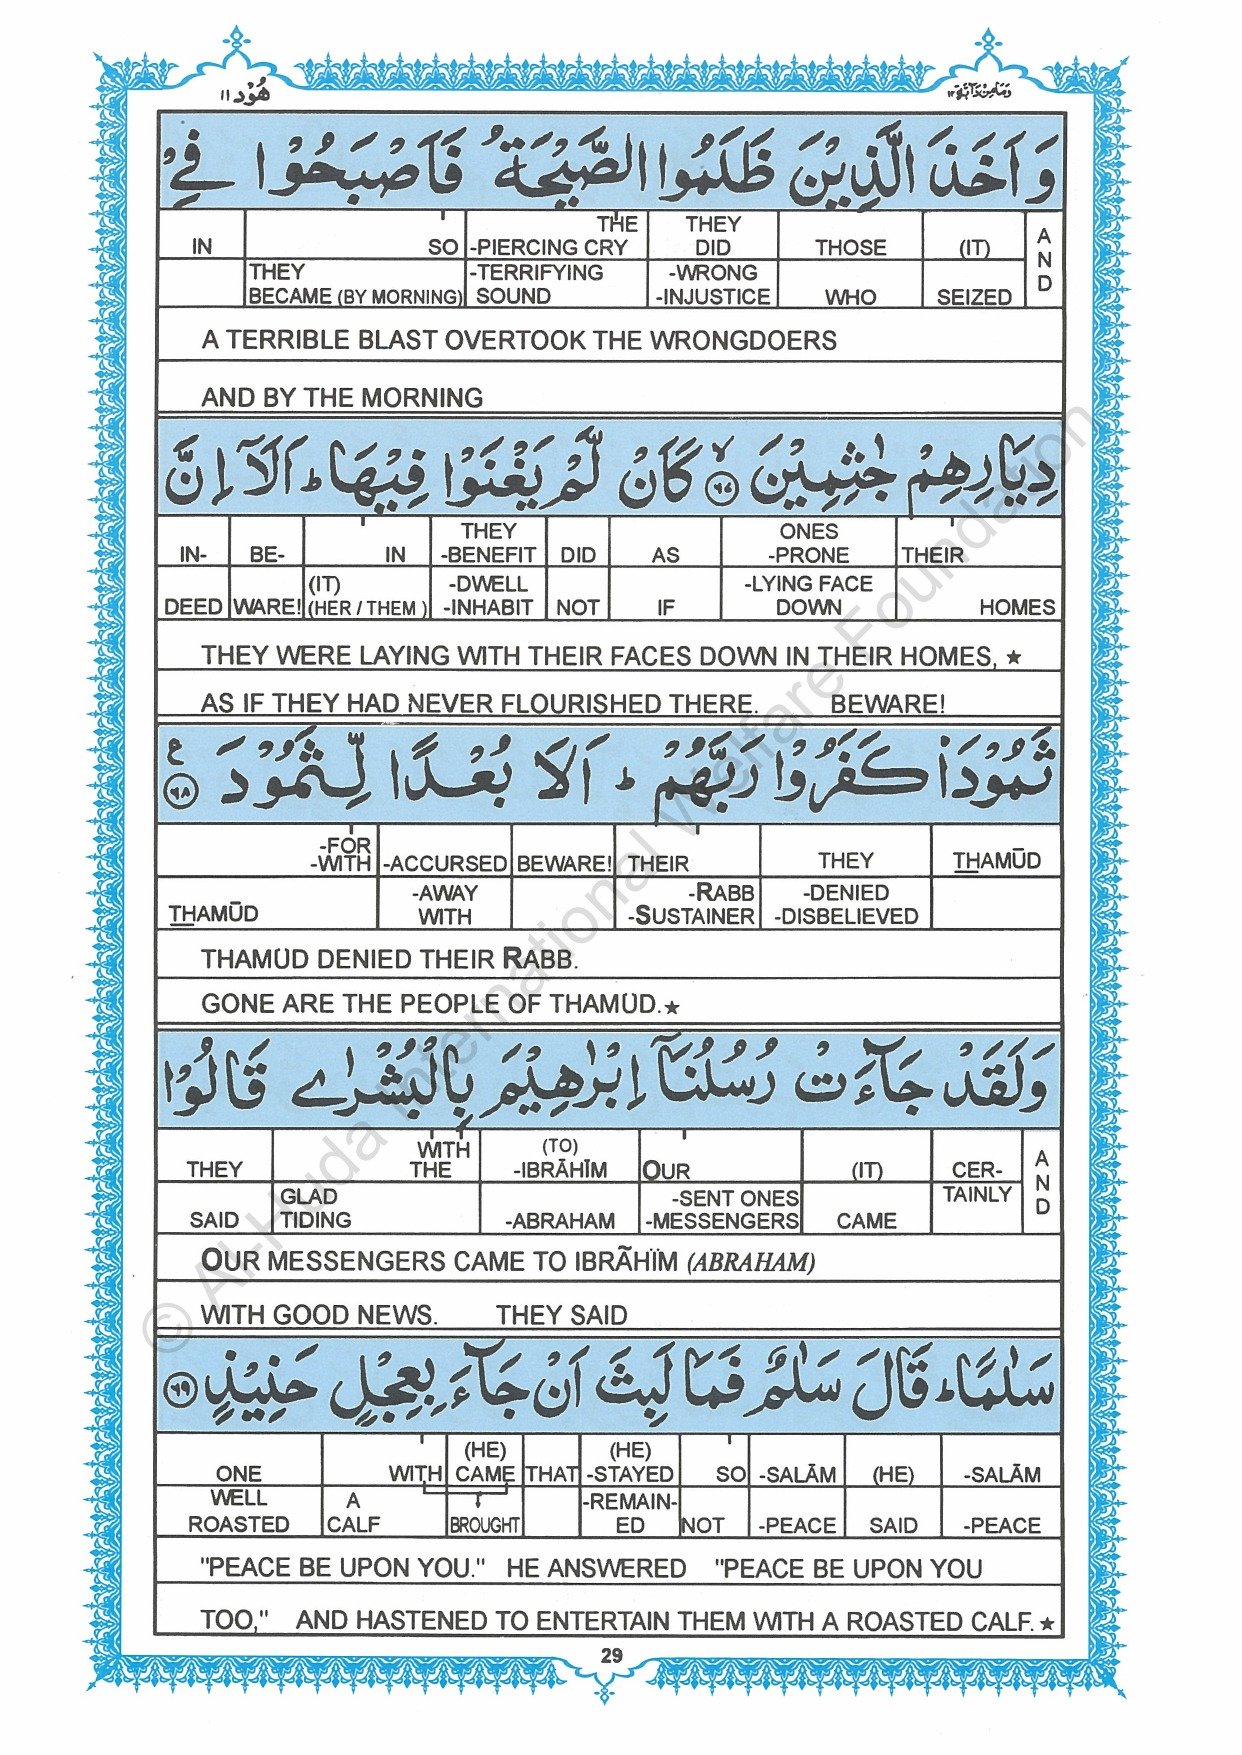 هُوْد ١١
وَمَا مِنْ دَآبَّة ١٢
وَ اَخَذَ الَّذِيْنَ ظَلَمُوا الصَّيْحَةُ فَاَصْبَحُوْا فِيْ
IN SO THE -PIERCING CRY THEY DID THOSE (IT) AND
THEY BECAME (BY MORNING) -TERRIFYING SOUND -WRONG -INJUSTICE WHO SEIZED
A TERRIBLE BLAST OVERTOOK THE WRONGDOERS
AND BY THE MORNING
دِيَارِهِمْ جٰثِمِيْنَ ۙ ٦٧ كَاَنْ لَّمْ يَغْنَوْا فِيْهَا ؕ اَلَاۤ اِنَّ
IN- BE- IN THEY -BENEFIT DID AS ONES -PRONE THEIR
DEED WARE! (IT) (HER / THEM ) -DWELL -INHABIT NOT IF -LYING FACE DOWN HOMES
THEY WERE LAYING WITH THEIR FACES DOWN IN THEIR HOMES, ★
AS IF THEY HAD NEVER FLOURISHED THERE. BEWARE!
ثَمُوْدَا۠ كَفَرُوْا رَبَّهُمْ ؕ اَلَا بُعْدًا لِّثَمُوْدَ ع ٦٨
-FOR -WITH -ACCURSED BEWARE! THEIR THEY THAMŪD
THAMŪD -AWAY WITH -RABB -SUSTAINER -DENIED -DISBELIEVED
THAMŪD DENIED THEIR RABB.
GONE ARE THE PEOPLE OF THAMŪD.★
وَ لَقَدْ جَآءَتْ رُسُلُنَاۤ اِبْرٰهِيْمَ بِالْبُشْرٰى قَالُوْا
THEY WITH THE (TO) -IBRĀHĪM OUR (IT) CER- AND
SAID GLAD TIDING -ABRAHAM -SENT ONES -MESSENGERS CAME TAINLY
OUR MESSENGERS CAME TO IBRÃHÏM (ABRAHAM)
WITH GOOD NEWS. THEY SAID
سَلٰمًا ؕ قَالَ سَلٰمٌ فَمَا لَبِثَ اَنْ جَآءَ بِعِجْلٍ حَنِيْذٍ ٦٩
ONE WITH (HE) CAME THAT (HE) -STAYED SO -SALĀM (HE) -SALĀM
WELL ROASTED A CALF BROUGHT -REMAIN-ED NOT -PEACE SAID -PEACE
"PEACE BE UPON YOU." HE ANSWERED "PEACE BE UPON YOU
TOO," AND HASTENED TO ENTERTAIN THEM WITH A ROASTED CALF.★
29
© Al-Huda International Welfare Foundation